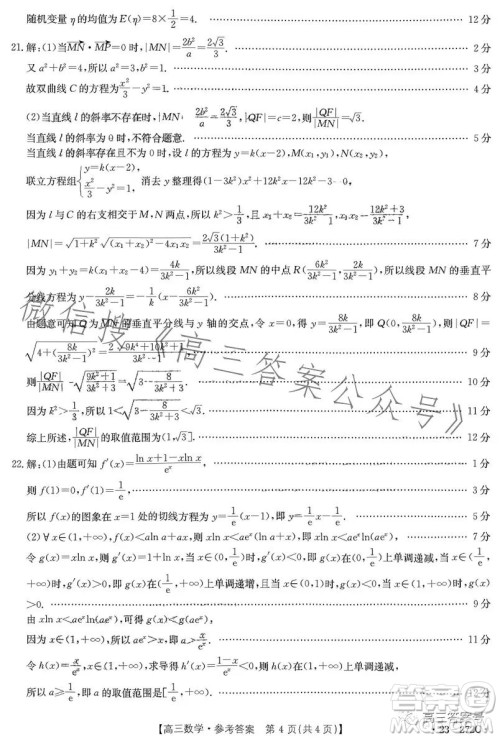 随机变量 η 的均值为 E(η)=8×1/2=4. 12 分
21. 解:(1)当 MN·MP=0 时, |MN|=2b²/a=2√3/3. 2 分
又 a²+b²=4,所以 a²=3,b²=1. 3 分
故双曲线 C 的方程为 x²/3−y²=1. 4 分
(2)当直线 l 的斜率不存在时, |MN| 2b²/a 2√3/3, |QF|=c=2,则|QF|/|MN|=√3.
当直线 l 的斜率为 0 时,不符合题意. 5 分
当直线 l 的斜率存在且不为 0 时,设 l 的方程为 y=k(x−2),M(x₁,y₁),N(x₂,y₂),
联立方程组{y=k(x−2), x²/3−y²=1, 消去 y 整理得(1−3k²)x²+12k²x−12k²−3=0,
因为 l 与 C 的右支相交于 M,N 两点,所以 k²>1/3,且 x₁+x₂=12k²/(3k²−1),x₁x₂=(12k²+3)/(3k²−1).
|MN|=√(1+k²) √((x₁+x₂)²−4x₁x₂)=2√3(1+k²)/(3k²−1). 7 分
因为 y₁+y₂=k(x₁+x₂−4)=4k/(3k²−1),所以线段 MN 的中点 R(6k²/(3k²−1), 2k/(3k²−1)),所以线段 MN 的垂直平
分线方程为 y−2k/(3k²−1)=−1/k(x−6k²/(3k²−1)). 8 分
由题意可知 Q 为 MN 的垂直平分线与 y 轴的交点,令 x=0,得 y=8k/(3k²−1),即 Q(0, 8k/(3k²−1)),则 |QF|=
√(4+(8k/(3k²−1))²)=2√(9k⁴+10k²+1)/(3k²−1). 9 分
则|QF|/|MN|=√((9k²+1)/(3k²+3))=√(3−8/(3k²+3)). 10 分
因为 k²>1/3,所以 1<√(3−8/(3k²+3))<√3. 11 分
综上所述, |QF|/|MN|的取值范围为(1,√3]. 12 分
22. 解:(1)由题可知 f′(x)=(ln x+1−xln x)/eˣ, 1 分
则 f(1)=0,f′(1)=1/e, 3 分
所以 f(x)的图象在 x=1 处的切线方程为 y=1/e(x−1),即 y=1/e x−1/e. 5 分
(2)∀x∈(1,+∞),f(x)<a(ln a+x),即 xln x<aeˣ(ln a+x),所以 xln x<aeˣln(aeˣ). 6 分
令 g(x)=xln x,则 g′(x)=1+ln x,当 x∈(0,1/e)时,g′(x)<0,即 g(x)在(0,1/e)上单调递减,当 x∈(1/e,
+∞)时,g′(x)>0,即 g(x)在(1/e,+∞)上单调递增,且当 x∈(0,1)时,g(x)<0,当 x∈(1,+∞)时,g(x)
>0. 9 分
由 xln x<aeˣln(aeˣ),可得 g(x)<g(aeˣ),
因为 x∈(1,+∞),所以 x<aeˣ,即 a>x/eˣ. 11 分
令 h(x)=x/eˣ,x∈(1,+∞),求导得 h′(x)=(1−x)/eˣ<0,所以 h(x)在(1,+∞)上单调递减,
所以 a⩾1/e,即 a 的取值范围为[1/e,+∞). 12 分
微信搜《高三答案公众号》
【高三数学·参考答案 第 4 页(共 4 页)】
高三答案君